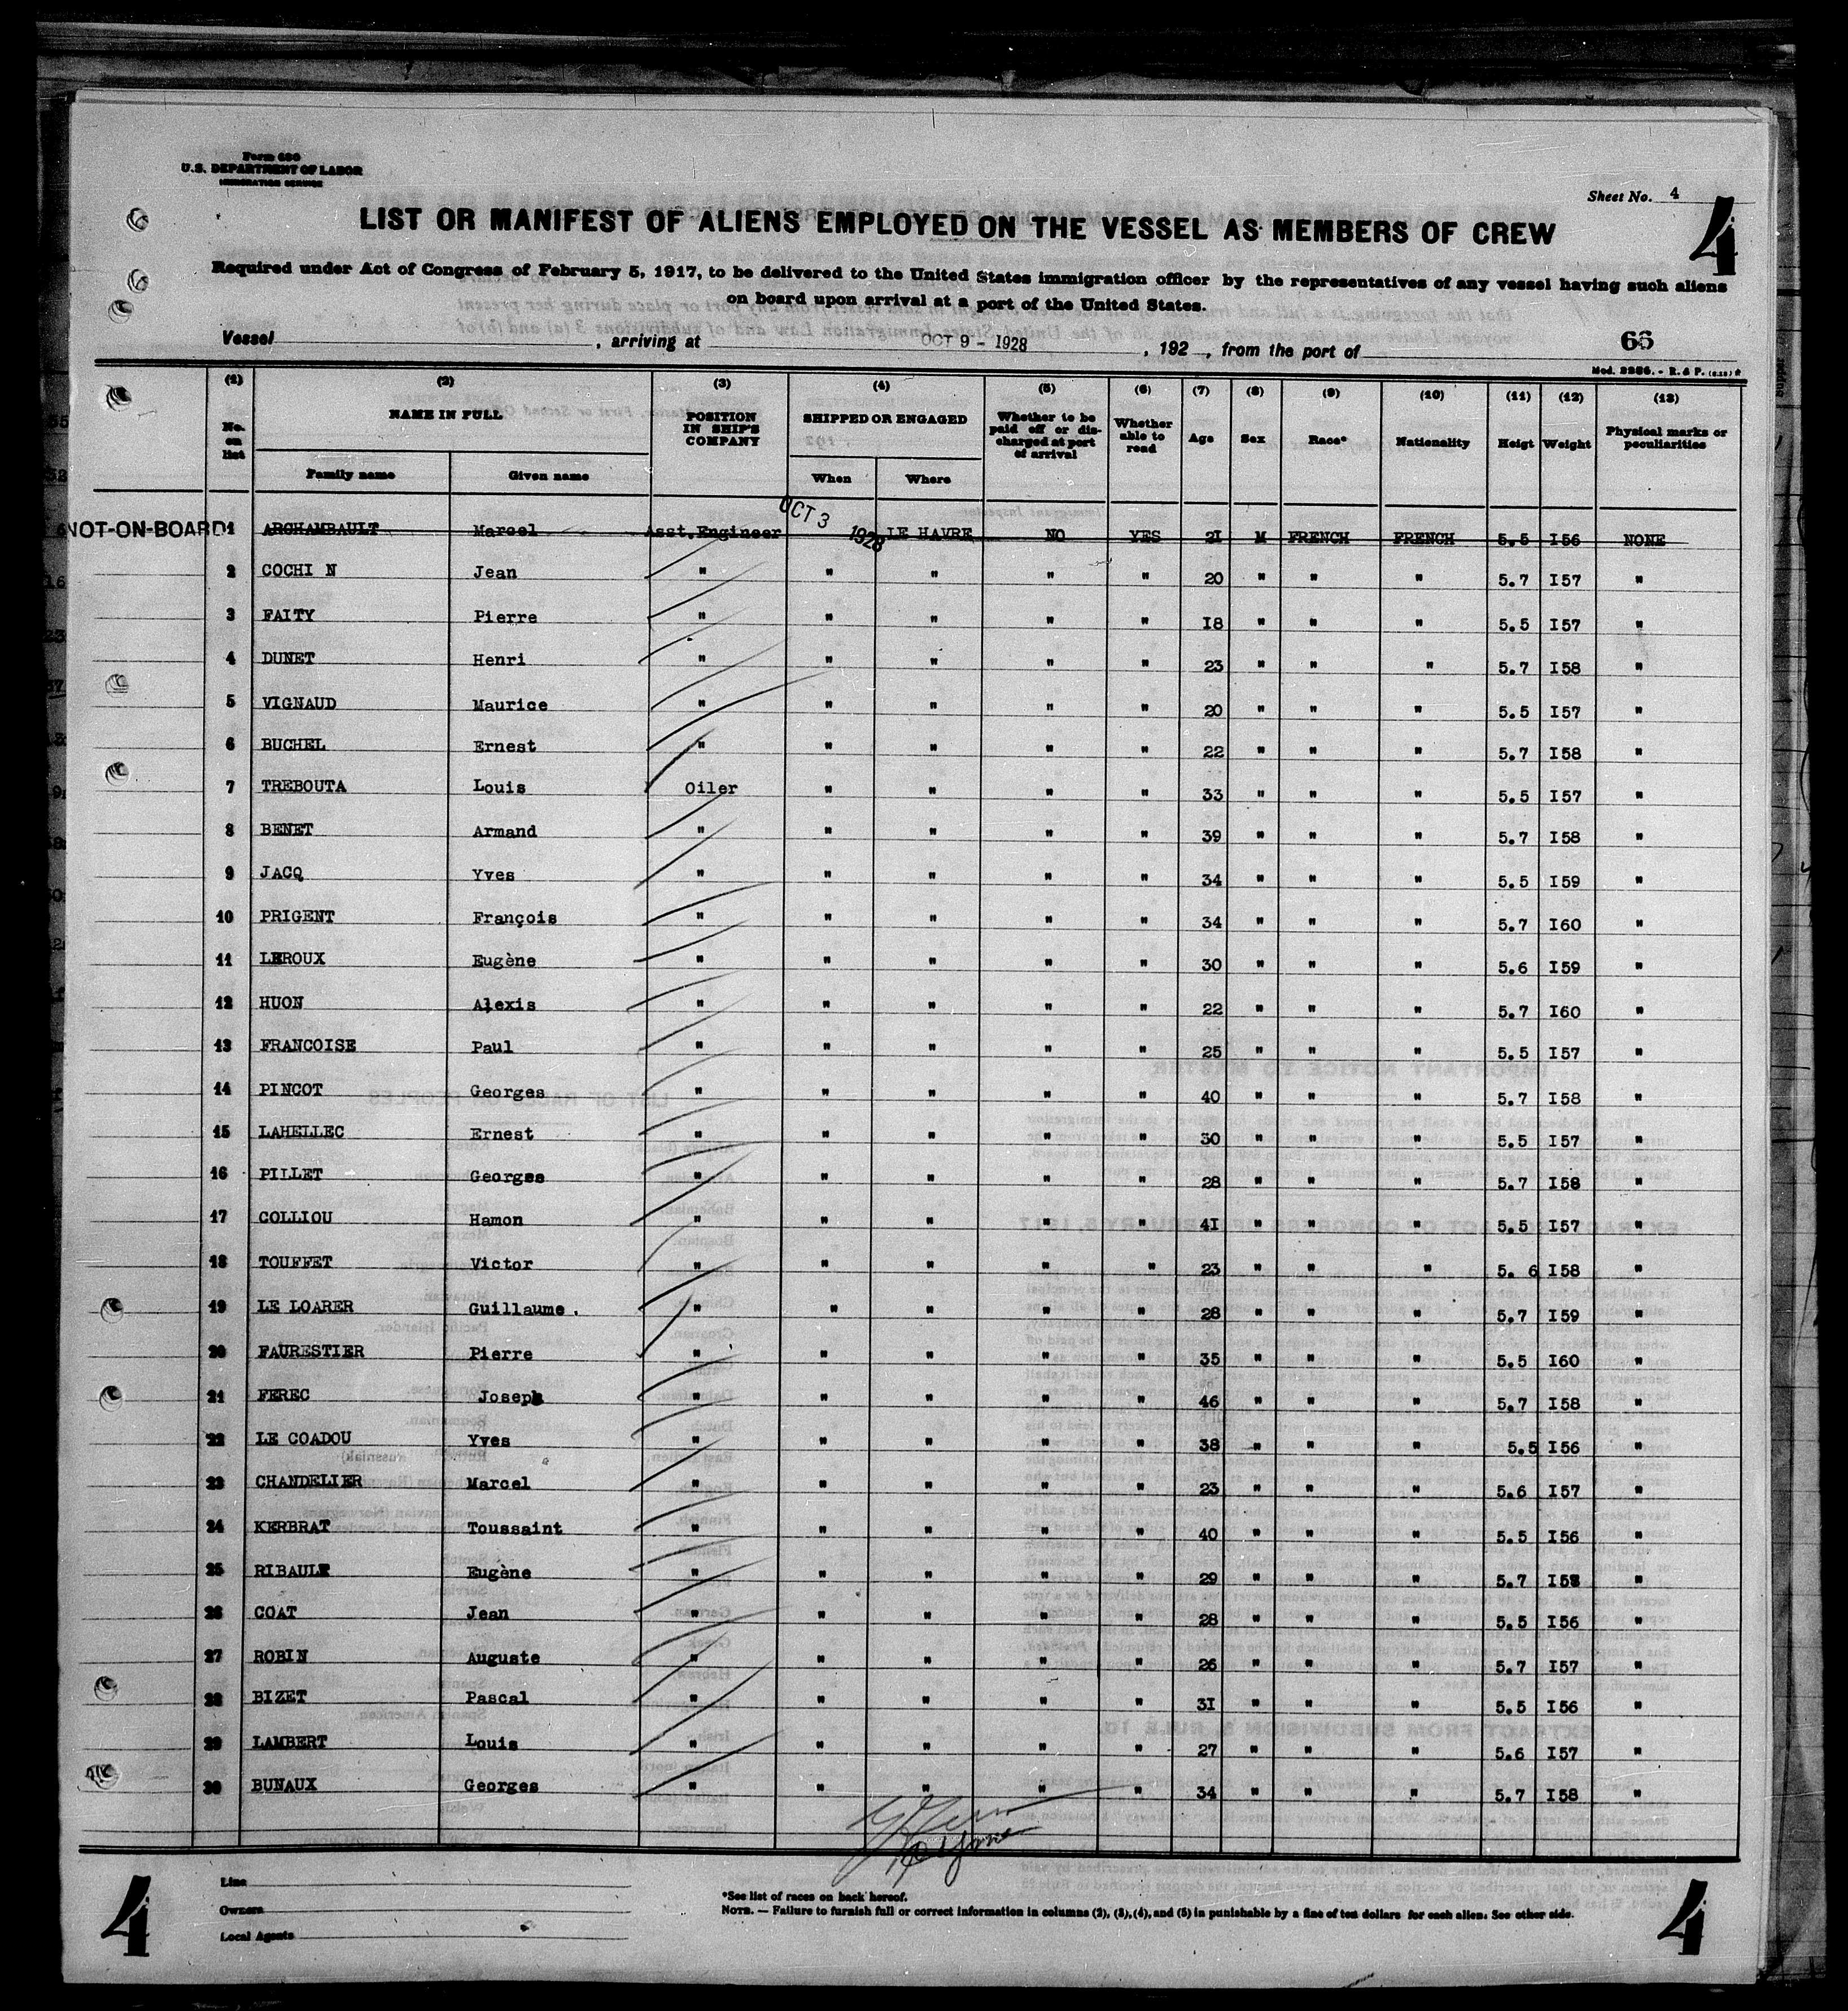 Form 680
U.S. DEPARTMENT OF LABOR
IMMIGRATION SERVICE
Sheet No. 4
4
LIST OR MANIFEST OF ALIENS EMPLOYED ON THE VESSEL AS MEMBERS OF CREW
Required under Act of Congress of February 5, 1917, to be delivered to the United States immigration officer by the representatives of any vessel having such aliens
on board upon arrival at a port of the United States.
Vessel , arriving at OCT 9 - 1928 , 192 , from the port of 66
Mod. 2286. - R. & P.
(1) (2) (3) (4) (5) (6) (7) (8) (9) (10) (11) (12) (13)
No. on list NAME IN FULL Family name Given name POSITION IN SHIP'S COMPANY SHIPPED OR ENGAGED When Where Whether to be paid off or discharged at port of arrival Whether able to read Age Sex Race* Nationality Heigt Weight Physical marks or peculiarities
NOT-ON-BOARD 1 ARCHAMBAULT Marcel Asst.Engineer OCT 3 1928 LE HAVRE NO YES 2I M FRENCH FRENCH 5.5 I56 NONE
2 COCHI N Jean " " " " " 20 " " " 5.7 I57 "
3 FAITY Pierre " " " " " I8 " " " 5.5 I57 "
4 DUNET Henri " " " " " 23 " " " 5.7 I58 "
5 VIGNAUD Maurice " " " " " 20 " " " 5.5 I57 "
6 BUCHEL Ernest " " " " " 22 " " " 5.7 I58 "
7 TREBOUTA Louis Oiler " " " " 33 " " " 5.5 I57 "
8 BENET Armand " " " " " 39 " " " 5.7 I58 "
9 JACQ Yves " " " " " 34 " " " 5.5 I59 "
10 PRIGENT François " " " " " 34 " " " 5.7 I60 "
11 LEROUX Eugène " " " " " 30 " " " 5.6 I59 "
12 HUON Alexis " " " " " 22 " " " 5.7 I60 "
13 FRANCOISE Paul " " " " " 25 " " " 5.5 I57 "
14 PINCOT Georges " " " " " 40 " " " 5.7 I58 "
15 LAHELLEC Ernest " " " " " 30 " " " 5.5 I57 "
16 PILLET Georges " " " " " 28 " " " 5.7 I58 "
17 COLLIOU Hamon " " " " " 4I " " " 5.5 I57 "
18 TOUFFET Victor " " " " " 23 " " " 5. 6 I58 "
19 LE LOARER Guillaume. " " " " " 28 " " " 5.7 I59 "
20 FAURESTIER Pierre " " " " " 35 " " " 5.5 I60 "
21 FEREC Joseph " " " " " 46 " " " 5.7 I58 "
22 LE COADOU Yves " " " " " 38 " " " 5.5 I56 "
23 CHANDELIER Marcel " " " " " 23 " " " 5.6 I57 "
24 KERBRAT Toussaint " " " " " 40 " " " 5.5 I56 "
25 RIBAULT Eugène " " " " " 29 " " " 5.7 I58 "
26 COAT Jean " " " " " 28 " " " 5.5 I56 "
27 ROBIN Auguste " " " " " 26 " " " 5.7 I57 "
28 BIZET Pascal " " " " " 3I " " " 5.5 I56 "
29 LAMBERT Louis " " " " " 27 " " " 5.6 I57 "
30 BUNAUX Georges " " " " " 34 " " " 5.7 I58 "
Line
Owners
Local Agents
*See list of races on back hereof.
NOTE. — Failure to furnish full or correct information in columns (2), (3), (4), and (5) in punishable by a fine of ten dollars for each alien. See other side.
4
4